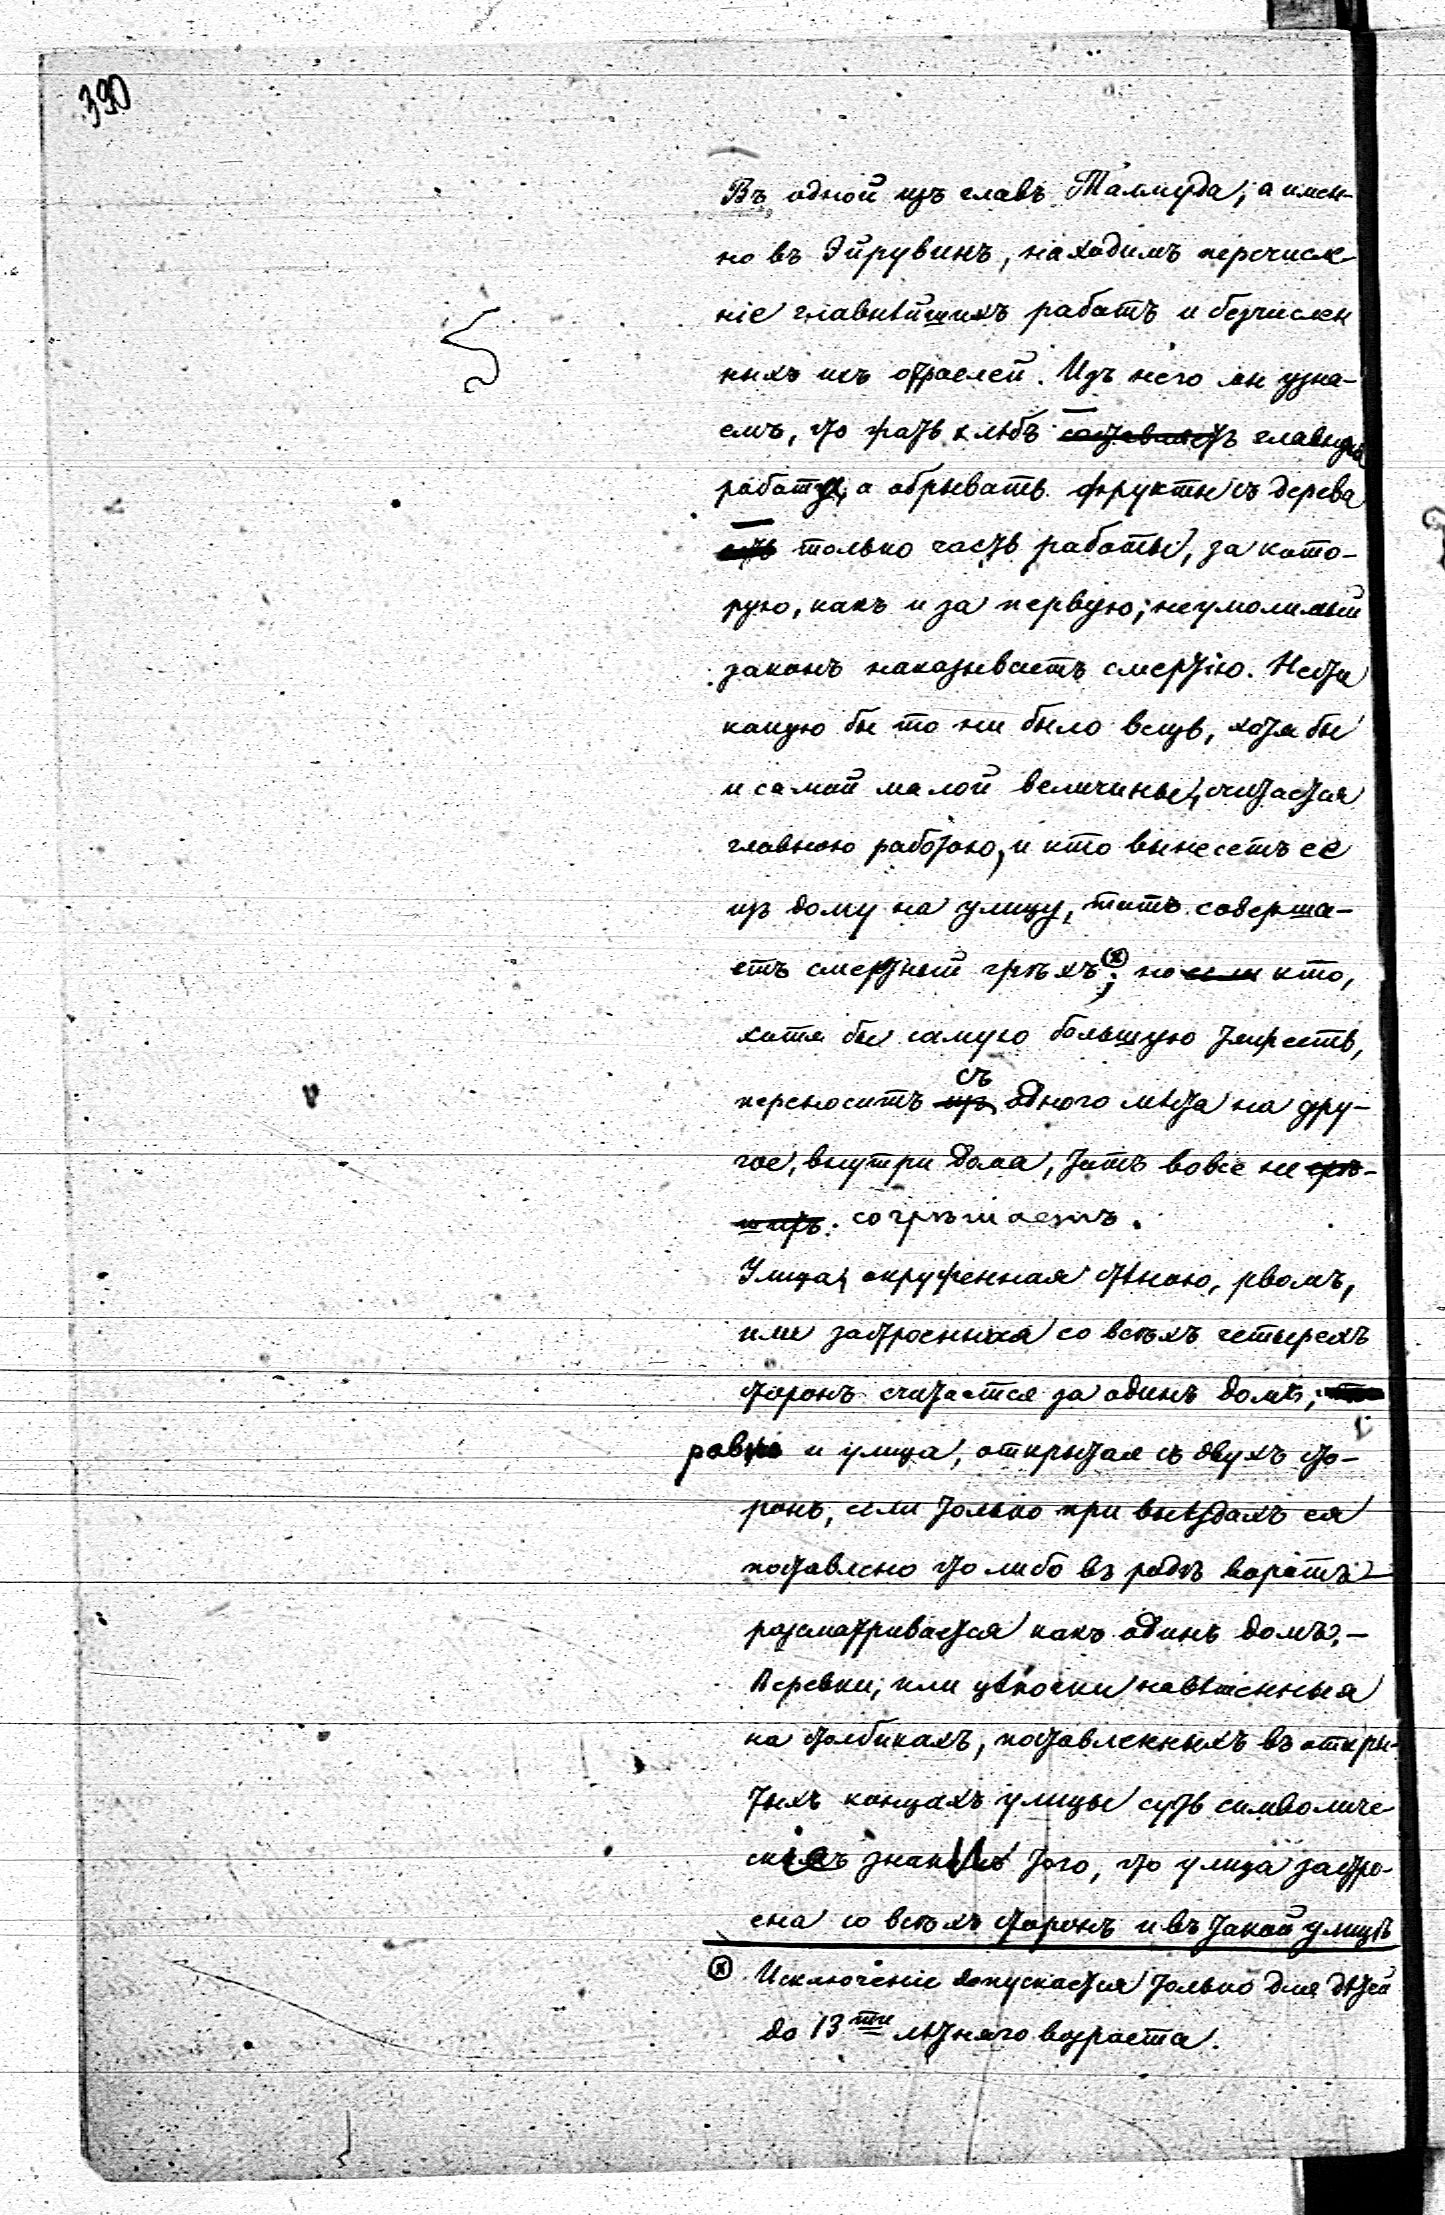 390
Въ одной изъ главъ Талмуда, а имен-
но въ Эйрувинъ, находимъ перечисле-
ніе главнѣйшихъ работъ и безчислен
ныхъ ихъ отраслей. Изъ него мы узна-
емъ, что жать хлѣбъ составляетъ главную
работу, а обрывать фрукты съ дерева
есть только часть работы, за кото-
рую, какъ и за первую, неумолимый
законъ наказываетъ смертію. Нести
какую бы то ни было вещь, хотя бы
и самой малой величины, считается
главною работою, и кто вынесетъ ее
изъ дому на улицу, тотъ соверша-
етъ смертный грѣхъ (x); но если кто,
хотя бы самую большую тяжесть,
съ
переноситъ изъ одного мѣста на дру-
гое, внутри дома, тотъ вовсе не грѣ-
шитъ. согрѣшаетъ.
Улица, окруженная стѣною, рвомъ,
или застроенная со всѣхъ четырехъ
сторонъ считается за одинъ домъ;
равно и улица, открытая съ двухъ сто-
ронъ, если только при въѣздахъ ея
поставлено что либо въ родѣ воротъ —
разсматривается какъ одинъ домъ. —
Веревки, или цѣпочки навѣшенныя
на столбикахъ, поставленныхъ въ откры-
тыхъ концахъ улицы суть символиче-
скіе знаки того, что улица застро-
ена со всѣхъ сторонъ и въ такой улицѣ
(x) Исключеніе допускается только для дѣтей
до 13 ти лѣтняго возраста.